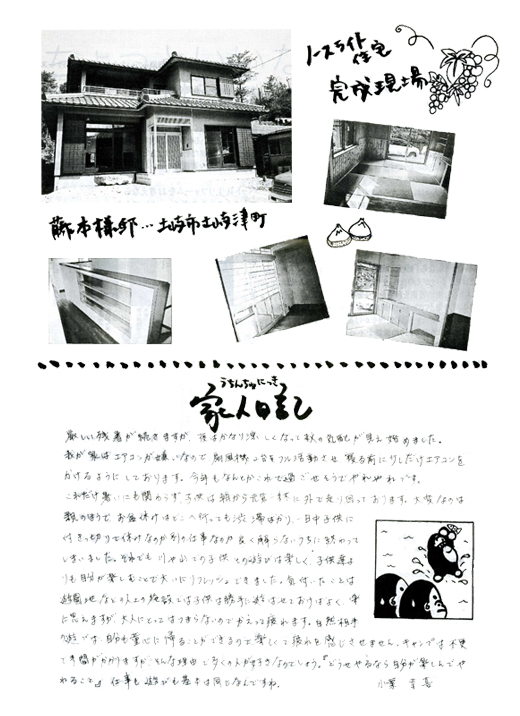 ノースライト
住宅
完成現場
藤本様邸…土崎市土崎津町
うちんちゅにっき
家人日記
厳しい残暑が続きますが、夜はかなり涼しくなって秋の気配が見え始めました。
我が家はエアコンが嫌いなので、扇風機2台をフル活動させ寝る前に少しだけエアコンを
かけるようにしております。今年もなんとかこれで過ごせそうでやれやれです。
これだけ暑いにも関わらず子供は朝から元気一杯に外で走り回っております。大変なのは
親のほうで、お盆休みはどこへ行っても渋滞ばかり、一日中子供に
付きっ切りで休みなのか別の仕事なのか良く解らないうちに終わって
しまいました。それでも の子供との遊びは楽しく、子供達よ
りも自分が楽しむことで大いにリフレッシュできました。気付いたことは
遊園地などの人工の施設では子供は勝手に遊ばせておけばよく、楽
に思えますが、大人にとってはつまらないのでかえって疲れます。自然相手
の遊びでは、自分も童心に帰ることができるので楽しくて疲れを感じさせません。キャンプは不便
で手間がかかりますが、そんな理由で多くの人が好きなのでしょう。『どうせやるなら自分が楽しんでや
れること』仕事も遊びも基本は同じなんですね。